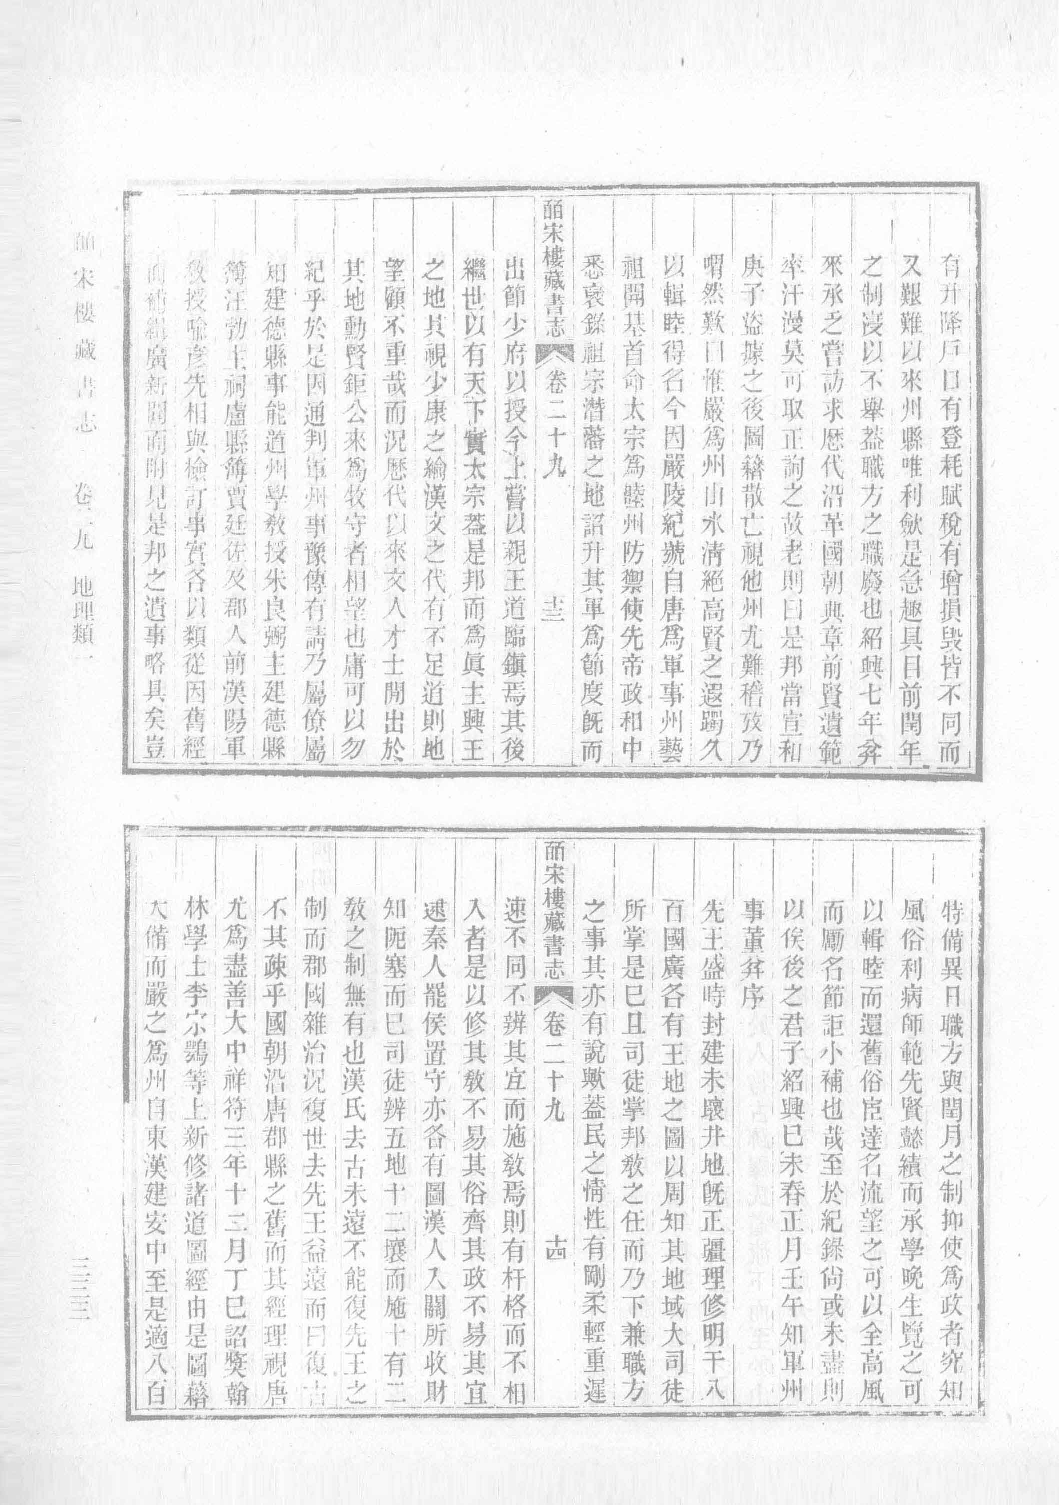 有升降戶口有登耗賦稅有增損毀皆不同而
又艱難以來州縣唯利斂是急趣具目前閏年
之制寖以不舉葢職方之職廢也紹興七年弅
來承乏嘗訪求歷代沿革國朝典章前賢遺範
率汗漫莫可取正詢之故老則曰是邦當宣和
庚子盜據之後圖籍散亡視他州尤難稽攷乃
喟然歎曰惟嚴爲州山水淸絕高賢之遐躅久
以輯睦得名今因嚴陵紀號自唐爲軍事州藝
祖開基首命太宗爲睦州防禦使先帝政和中
悉裒錄祖宗潛藩之地詔升其軍爲節度旣而
皕宋樓藏書志
卷二十九
十三
出節少府以授今上嘗以親王道臨鎭焉其後
繼世以有天下實太宗葢是邦而爲眞主興王
之地其視少康之綸漢文之代有不足道則地
望顧不重哉而況歷代以來文人才士間出於
其地勳賢鉅公來爲牧守者相望也庸可以勿
紀乎於是因通判軍州事豫傳有請乃屬僚屬
知建德縣事能遹州學敎授朱良弼主建德縣
簿汪勃主桐廬縣簿賈廷佐及郡人前漢陽軍
敎授喻彥先相與檢訂事實各以類從因舊經
而補緝廣新聞而附見是邦之遺事略具矣豈
特備異日職方與閏月之制抑使爲政者究知
風俗利病師範先賢懿績而承學晚生覽之可
以輯睦而還舊俗宦達名流望之可以全高風
而勵名節詎小補也哉至於紀錄尙或未盡則
以俟後之君子紹興巳未春正月壬午知軍州
事董弅序
先王盛時封建未壞井地旣正疆理修明千八
百國廣各有王地之圖以周知其地域大司徒
所掌是巳且司徒掌邦敎之任而乃下兼職方
之事其亦有說歟葢民之情性有剛柔輕重遲
皕宋樓藏書志
卷二十九
十四
速不同不辨其宜而施敎焉則有杆格而不相
入者是以修其敎不易其俗齊其政不易其宜
逮秦人罷侯置守亦各有圖漢人入關所收財
知阨塞而巳司徒辨五地十二壤而施十有二
敎之制無有也漢氏去古未遠不能復先王之
制而郡國雜治況復世去先王益遠而曰復古
不其疎乎國朝沿唐郡縣之舊而其經理視唐
尤爲盡善大中祥符三年十二月丁巳詔奬翰
林學士李宗諤等上新修諸道圖經由是圖籍
大備而嚴之爲州自東漢建安中至是適八百
皕宋樓藏書志　卷二九　地理類一
三三三